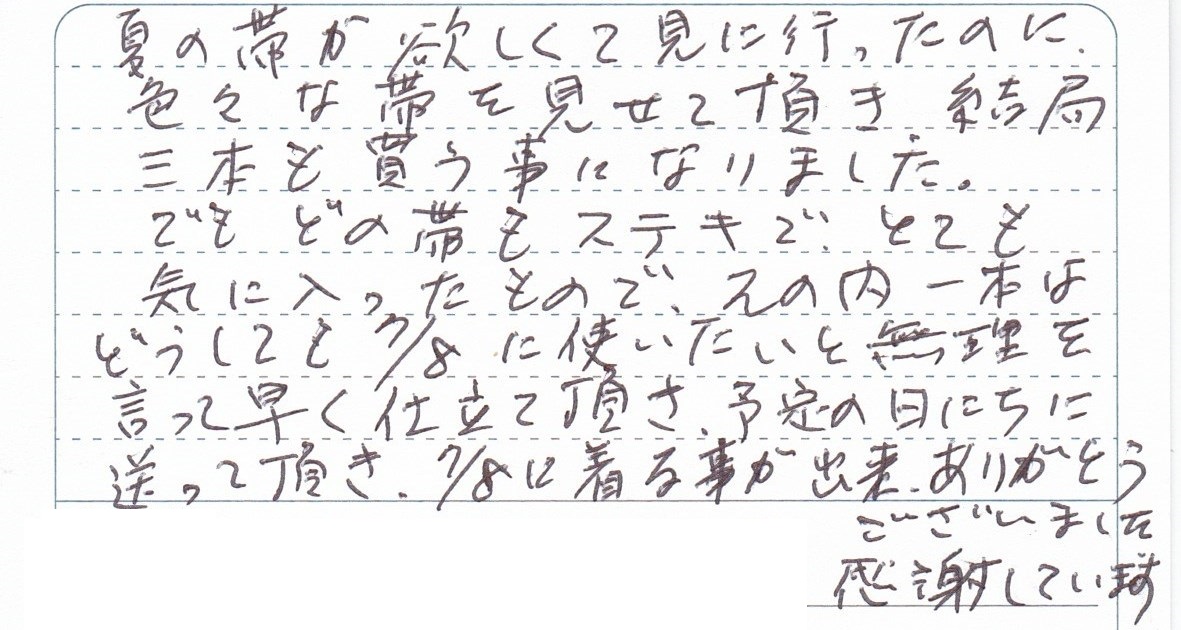 夏の帯が欲しくて見に行ったのに、
色々な帯を見せて頂き、結局
三本も買う事になりました。
でも どの帯も ステキで、とても
気に入ったもので、その内 一本は
どうしても 7/8 に使いたいと無理を
言って早く仕立て頂き、予定の日にちに
送って頂き、7/8に着る事が出来、ありがとう
ございました
感謝しています